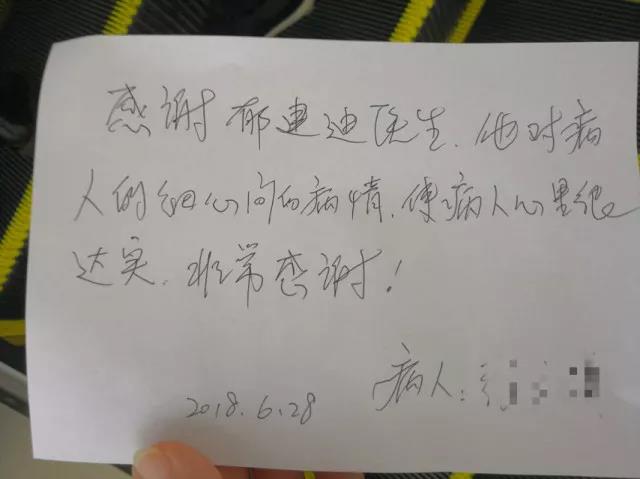 感谢郁建迪医生.他对病
人的细心问的病情.使病人心里很
达实.非常感谢!
病人:
2018.6.28